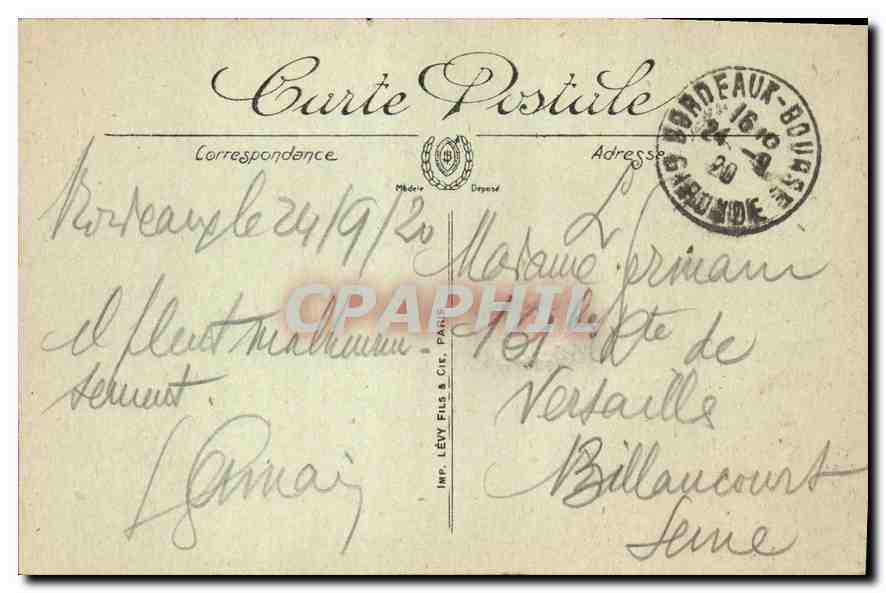 Carte Postale
Correspondance
Adresse
Modèle Déposé
BORDEAUX-BOURSE
16 10
24 -9
20
GIRONDE
Bordeaux le 24/9/20
il pleut malheureu-
sement.
L Germain
L
Madame Germain
161 Rte de
Versaille
Billancourt
Seine
IMP. LÉVY FILS & CIE, PARIS
CPAPHIL